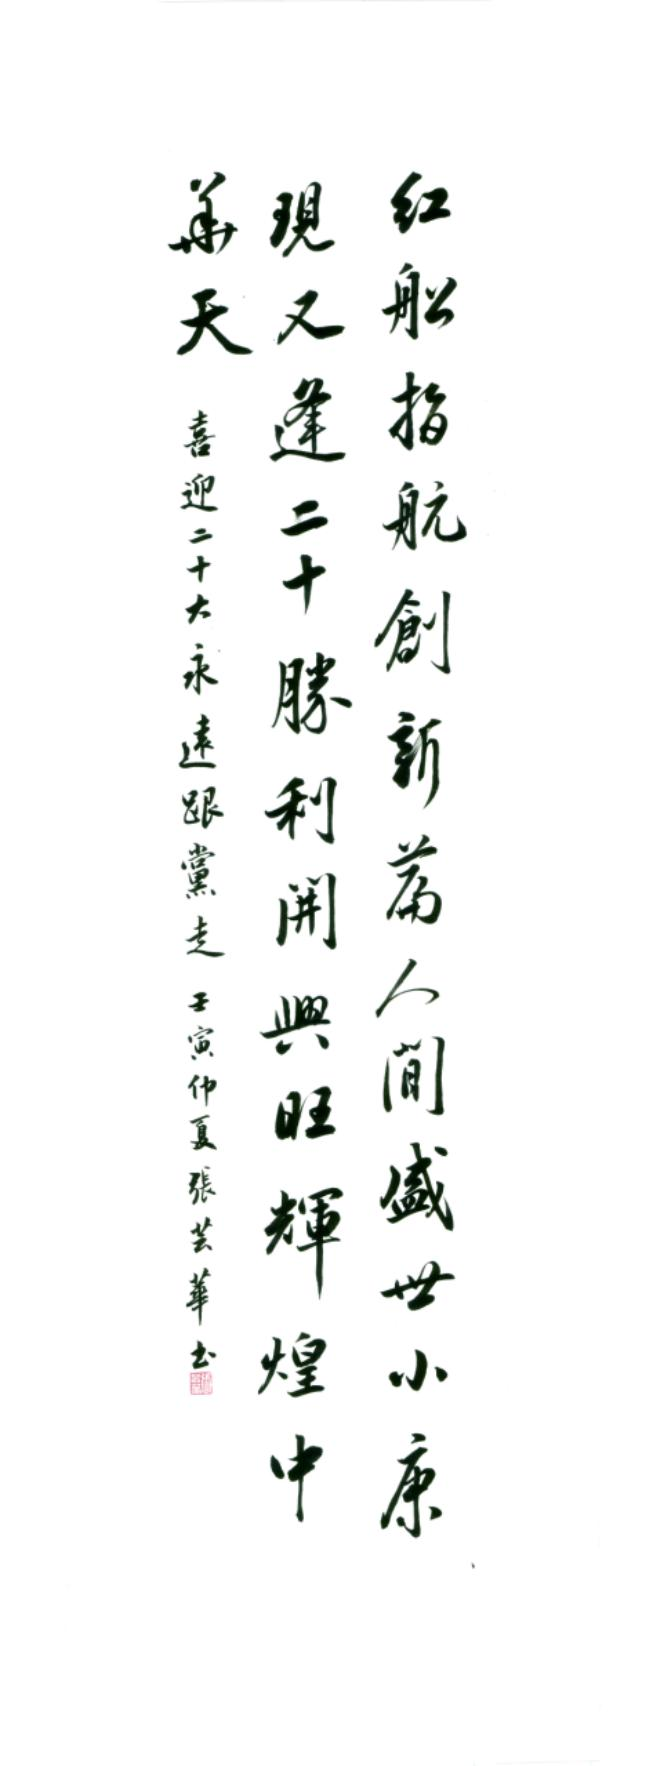 红船指航創新篇人間盛世小康
現又逢二十勝利開興旺輝煌中
華天
喜迎二十大永遠跟黨走 壬寅仲夏張芸華书